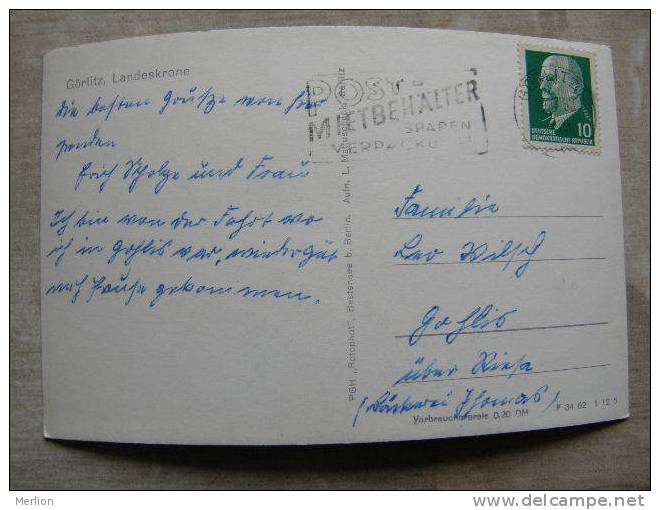 Görlitz, Landeskrone
Die besten Grüße von hier
senden
Erich Scholze und Frau
Ich bin von der Fahrt wo
ich in Gohlis war, wieder gut
nach Hause gekommen.
PGH „Rotophot", Bestensee b. Berlin. Aufn. L. Görlitz
POST-
MIETBEHÄLTER
SPAREN
VERPACKUNG
10
DEUTSCHE
DEMOKRATISCHE REPUBLIK
Familie
Leo Wilsch
Gohlis
über Riesa
(Bäckerei Thomas)
F 34 62 1 12 5
Verbraucherpreis 0,20 DM
Merlion
http://www.delcampe.net